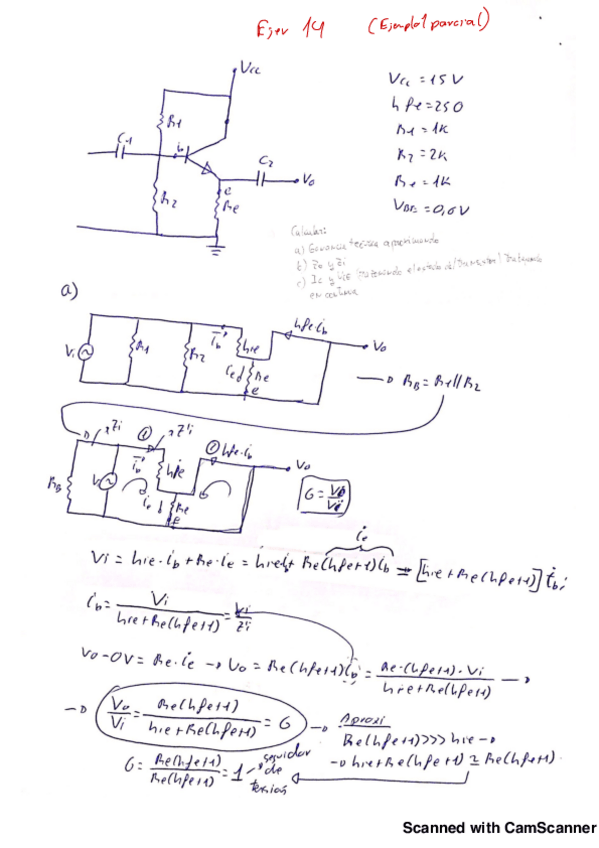 Ejer 14 (Ejemplo 1 parcial)
Vcc
Vcc = 15 V
hfe = 250
R1 = 1k
R2 = 2k
Re = 1k
VBE = 0,6V
R1
C1
ib
C2
Vo
R2
e
Re
Calcular:
a) Ganancia tensión aproximando
b) Zo y Zi
c) Ic y VCE
en continua
a)
hfe·ib
Vo
Vi
R1
R2
ib
hie
Re
e
→ RB = R1//R2
Zi
① Z'i
② hfe·ib
Vo
RB
ib
hie
ie
Re
e
G = Vo/Vi
ie
Vi = hie·ib + Re·ie = hie·ib + Re(hfe+1)ib = [hie+Re(hfe+1)] ib;
ib = Vi / hie+Re(hfe+1) = Vi / Z'i
Vo - 0V = Re·ie → Vo = Re(hfe+1)ib = Re·(hfe+1)·Vi / hie+Re(hfe+1) →
→ Vo/Vi = Re(hfe+1) / hie+Re(hfe+1) = G → Aproxi
Re(hfe+1)>>>hie →
→ hie+Re(hfe+1) ≃ Re(hfe+1).
G = Re(hfe+1) / Re(hfe+1) = 1 → seguidor de tensión
Scanned with CamScanner